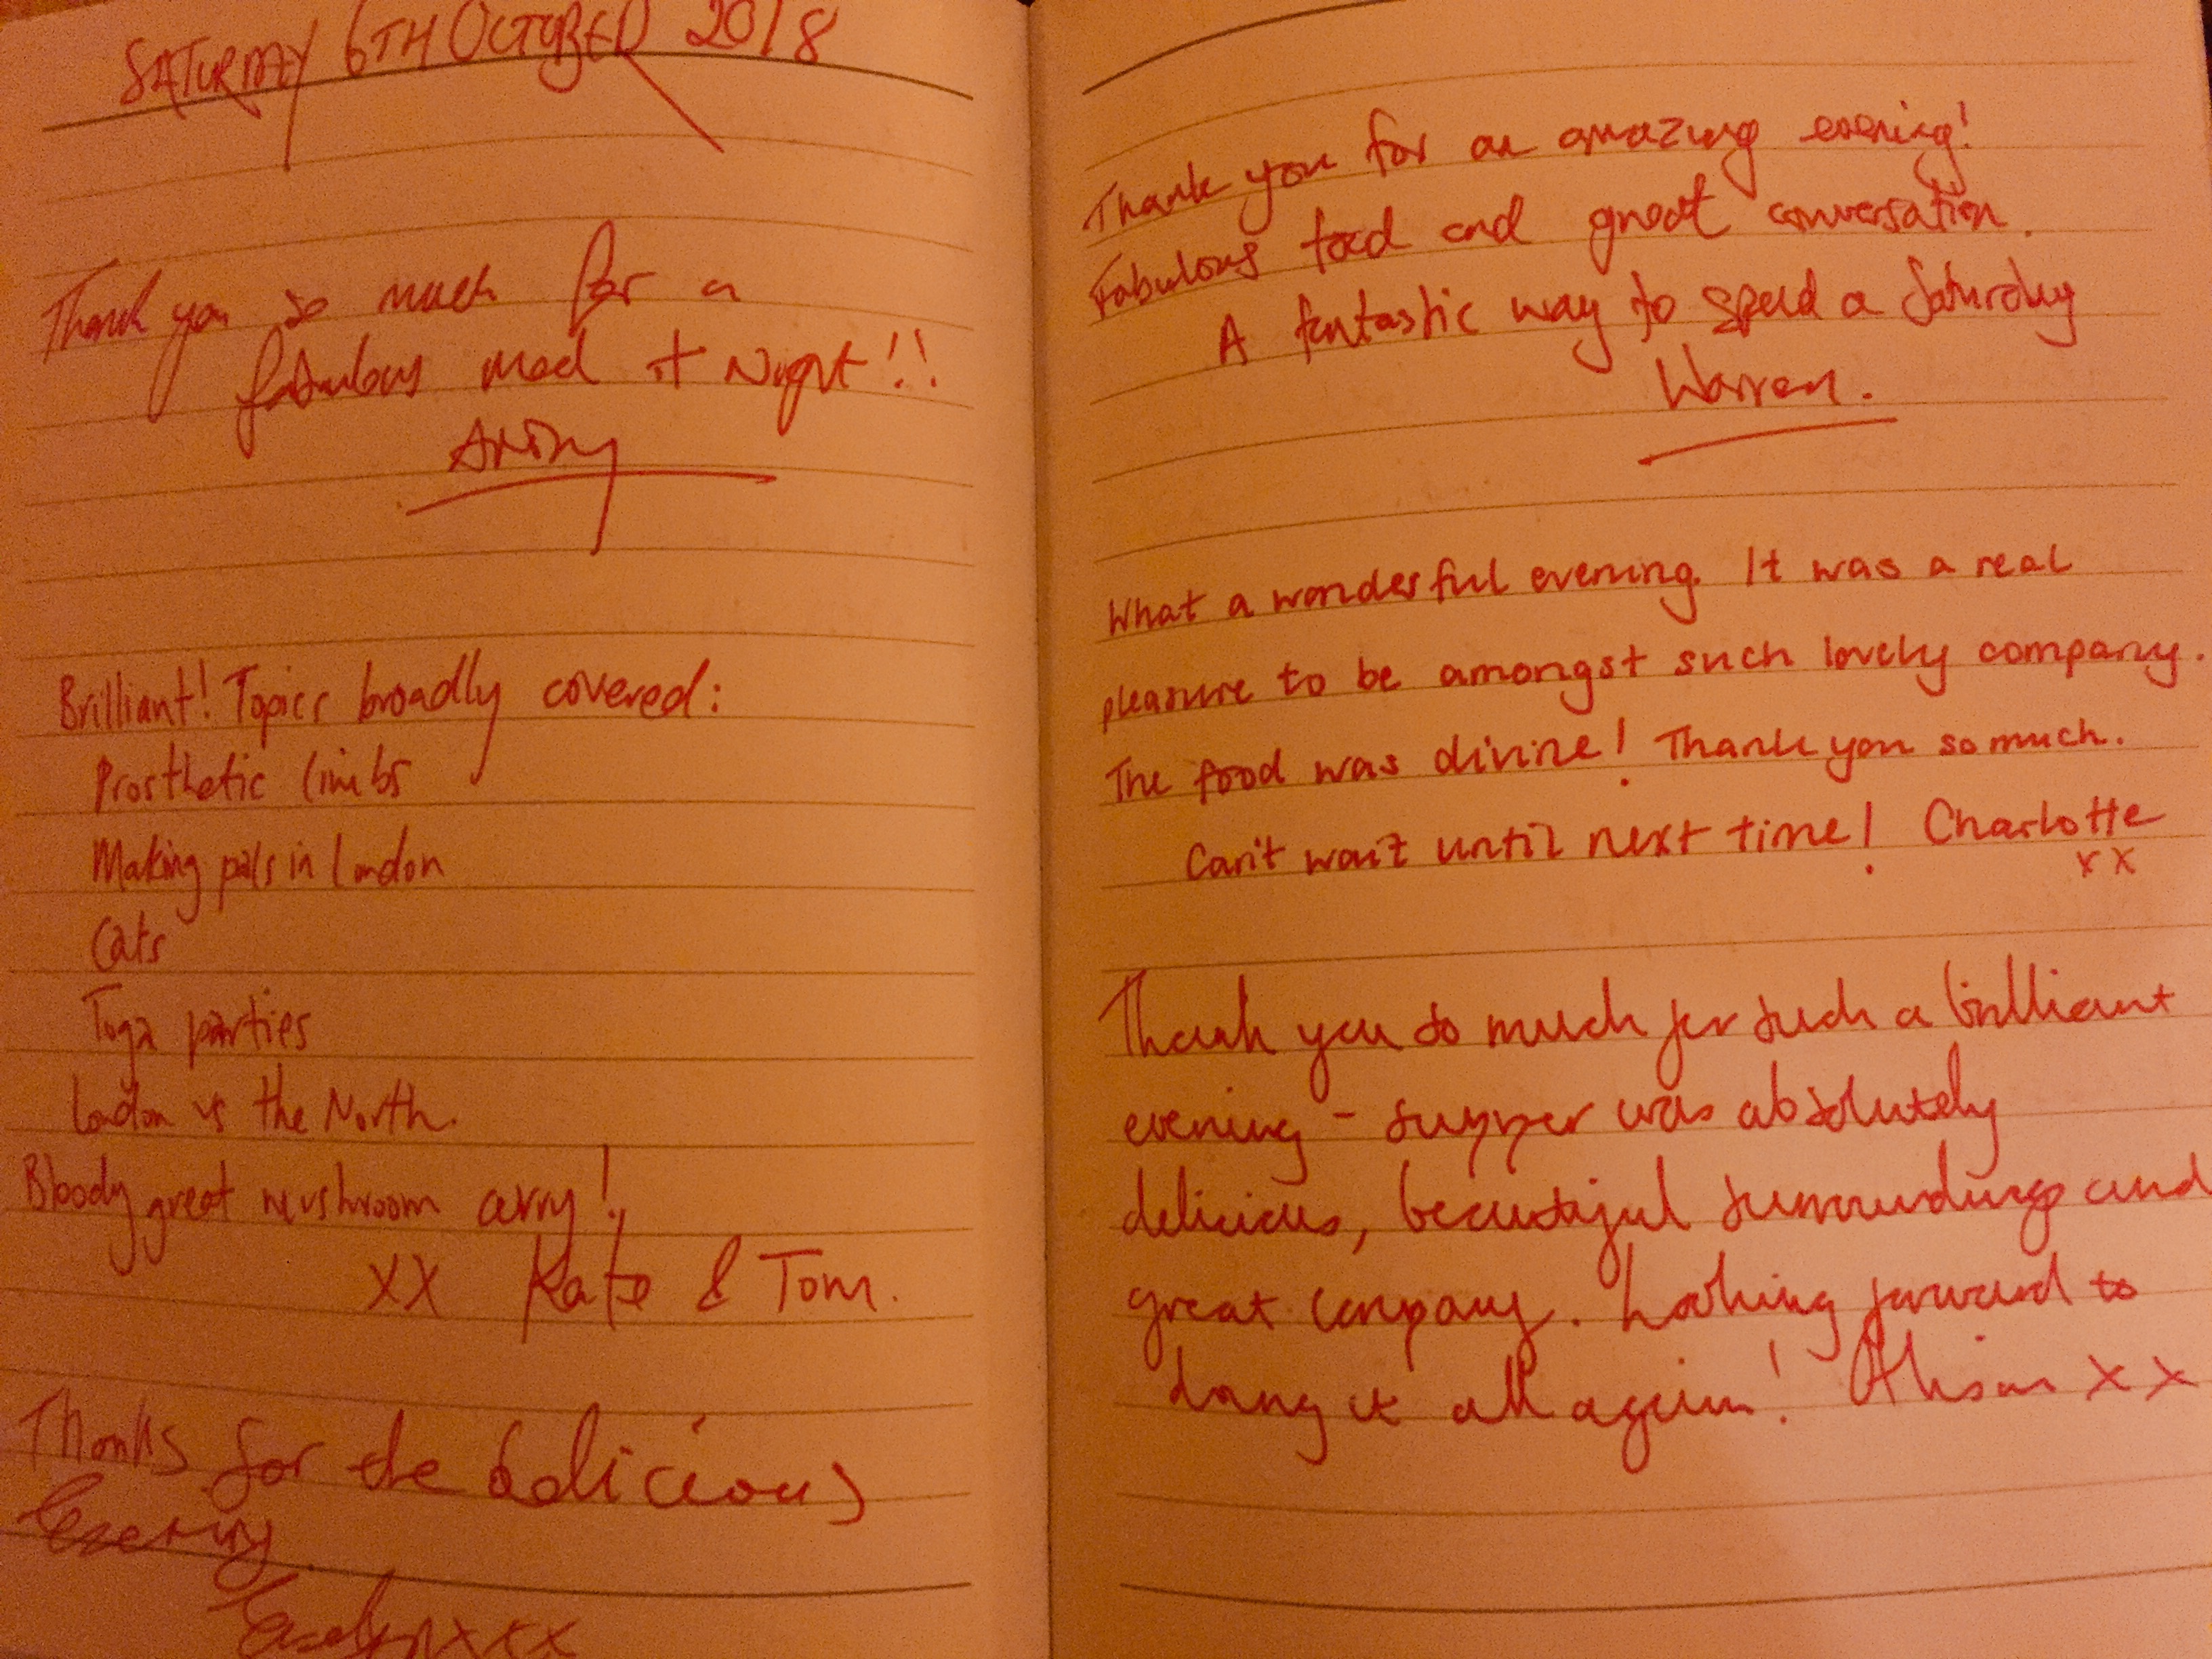 SATURDAY 6TH OCTOBER 2018
Thank you so much for a
fabulous meal + Night!!
Brilliant! Topics broadly covered:
Prosthetic limbs
Making pals in London
Cats
Toga parties
London vs the North.
Bloody great mushroom curry!
XX Kate & Tom.
Thanks for the delicious
Evening
xxx
Thank you for an amazing evening!
Fabulous food and great conversation.
A fantastic way to spend a Saturday
Warren.
What a wonderful evening. It was a real
pleasure to be amongst such lovely company.
The food was divine! Thank you so much.
Can't wait until next time! Charlotte
xx
Thank you so much for such a brilliant
evening - supper was absolutely
delicious, beautiful surroundings and
great company. Looking forward to
doing it all again! Alison xx